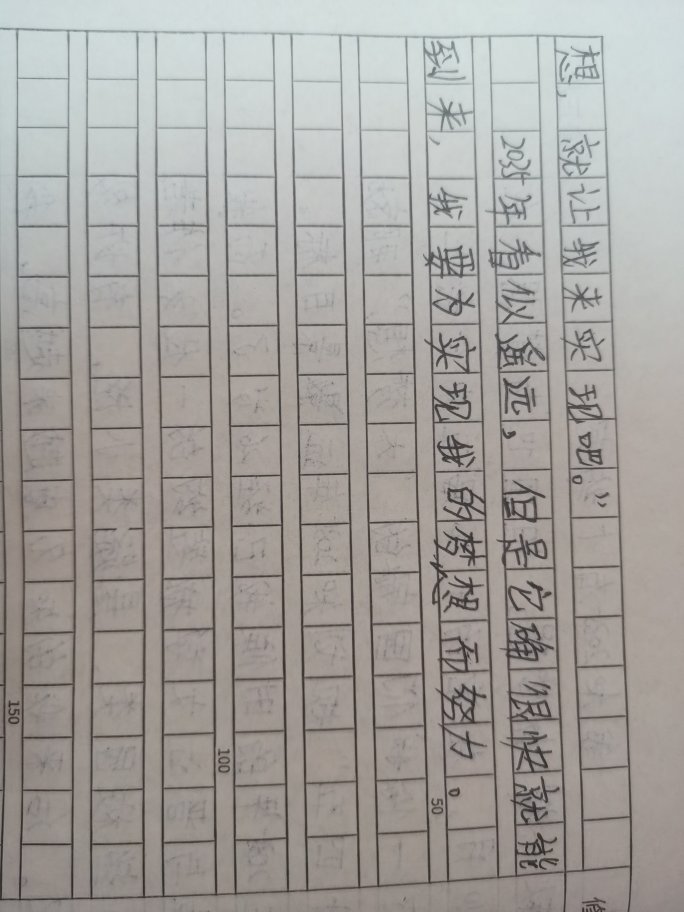 想，就让我来实现吧。”
2035年看似遥远，但是它确很快就能
到来，我要为实现我的梦想而努力。
50
100
150